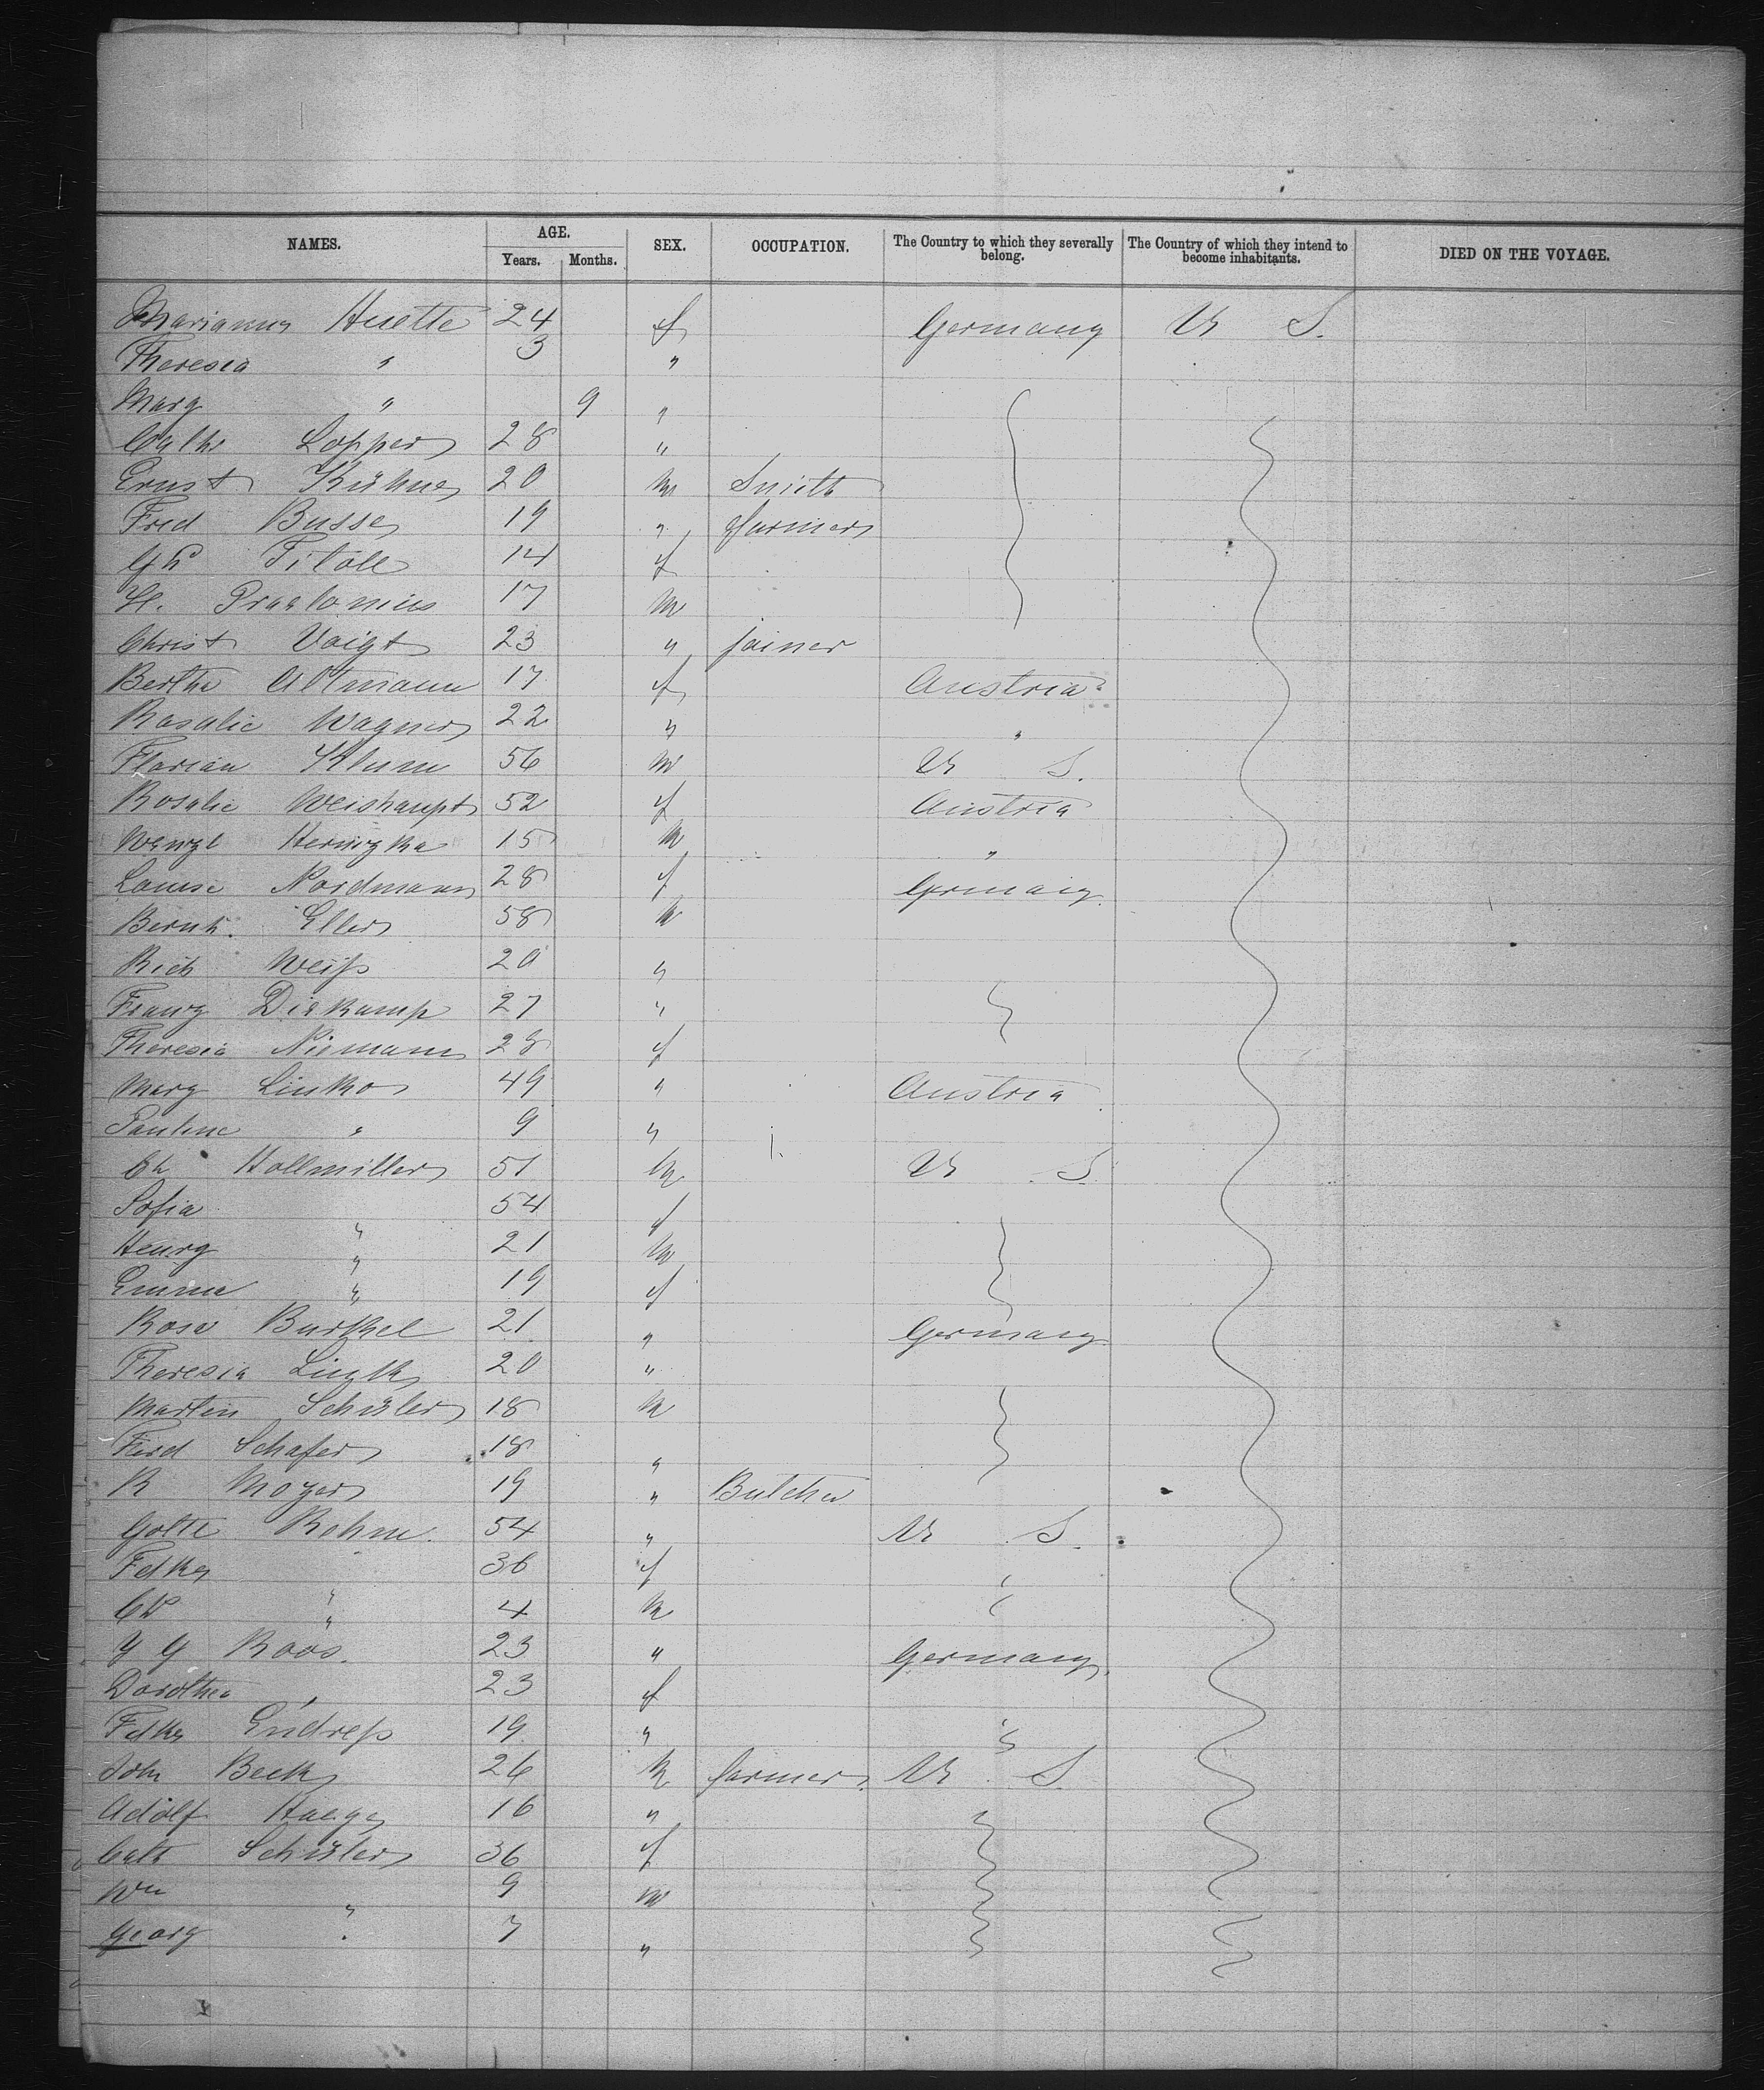 NAMES. AGE. SEX. OCCUPATION. The Country to which they severally belong. The Country of which they intend to become inhabitants. DIED ON THE VOYAGE.
Years. Months.
Huette 24 f Germany U S.
Theresia " 3 "
Marg " 9 "
Lopper 28 "
Ernst Kühne 20 m Smith
Fred Busse 19 " farmer
14 f
H. Praetonius 17 m
Christ Voigt 23 " joiner
Bertha Altmann 17 f Austria
Rosalie Wagner 22 " "
Florian Klum 56 m U S.
Rosalie Weishaupt 52 f Austria
Wenzl 15 m "
Louise Nordmann 28 f Germany
Bernh. Eller 58 m
Rich Weiß 20 "
Franz Diekamp 27 "
Theresia Niemann 28 f
Marg Linko 49 " Austria
Pauline " 9 "
Ch Hollmiller 51 m U S.
Sofia " 54 f
Henry " 21 m
Emma " 19 f
Rosa Burkel 21 " Germany
Theresia Link 20 "
Martin Schüler 18 m
Ferd Schafer 18 "
R Moyer 19 " Butcher
Gotte Rohm. 54 " U S.
36 f
" 4 m
Roos. 23 " Germany
Dorothea " 23 f
Endreß 19 "
John Beck 26 m farmer U S
Adolf 16 "
Cath Schüler 36 f
Wm " 9 m
Georg " 7 "